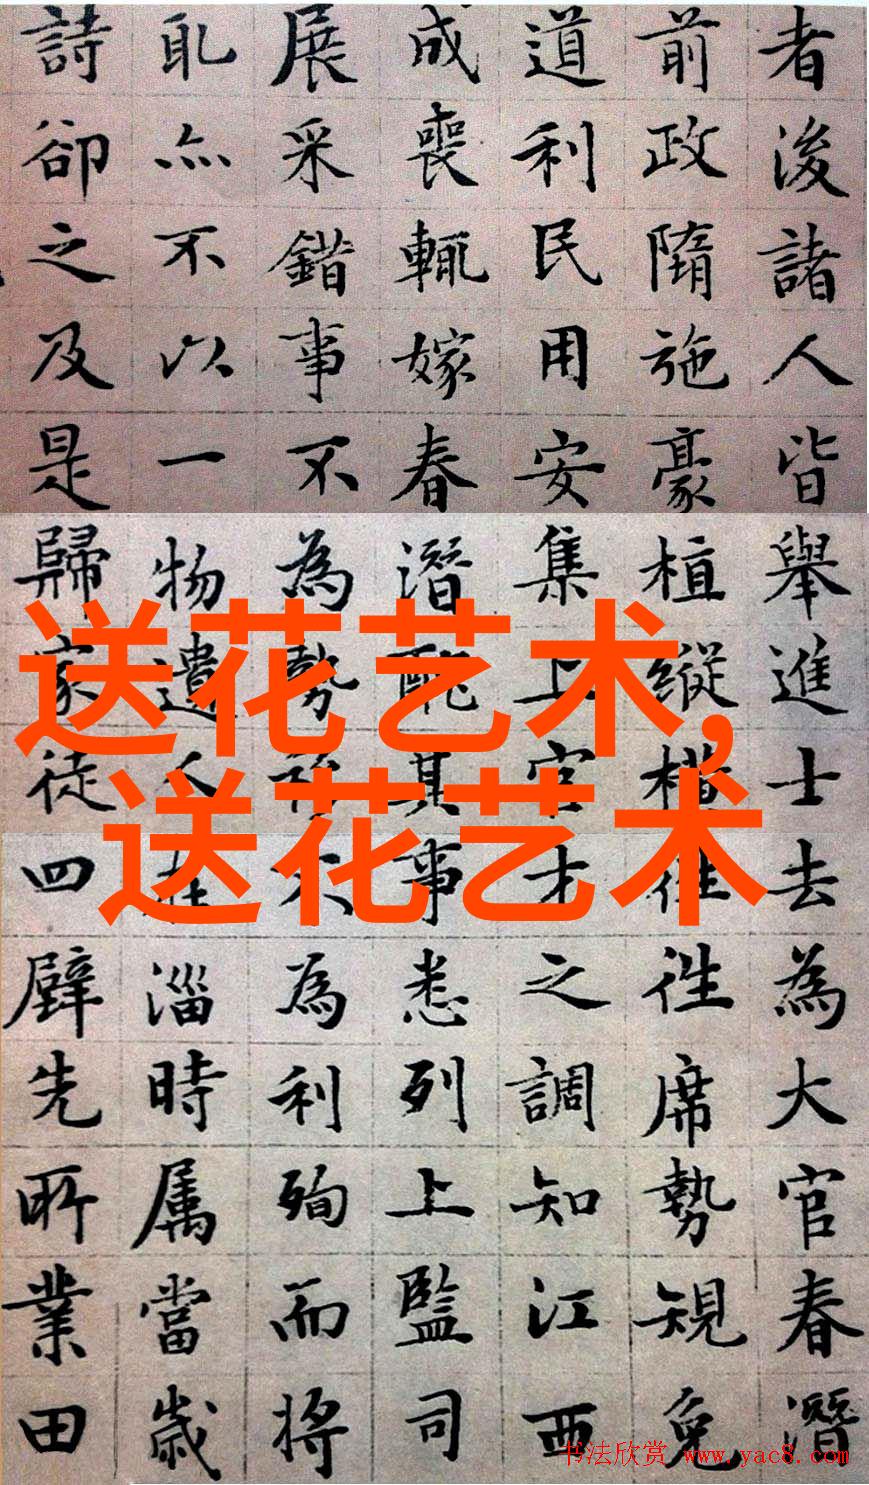 者後諸人皆舉進士去為大官春潛
前政隋施豪植縱往往席勢規免
道利民用安集上官才之調知江西
成喪輒嫁春潛其事悉列上監司
展采錯事不為勢不為利殉而將
耴亦不以一物遺人在淄時属當歲
詩卻之及是歸家徒四壁先所業田
送花艺术,
送花艺术
书法欣赏 www.yac8.com